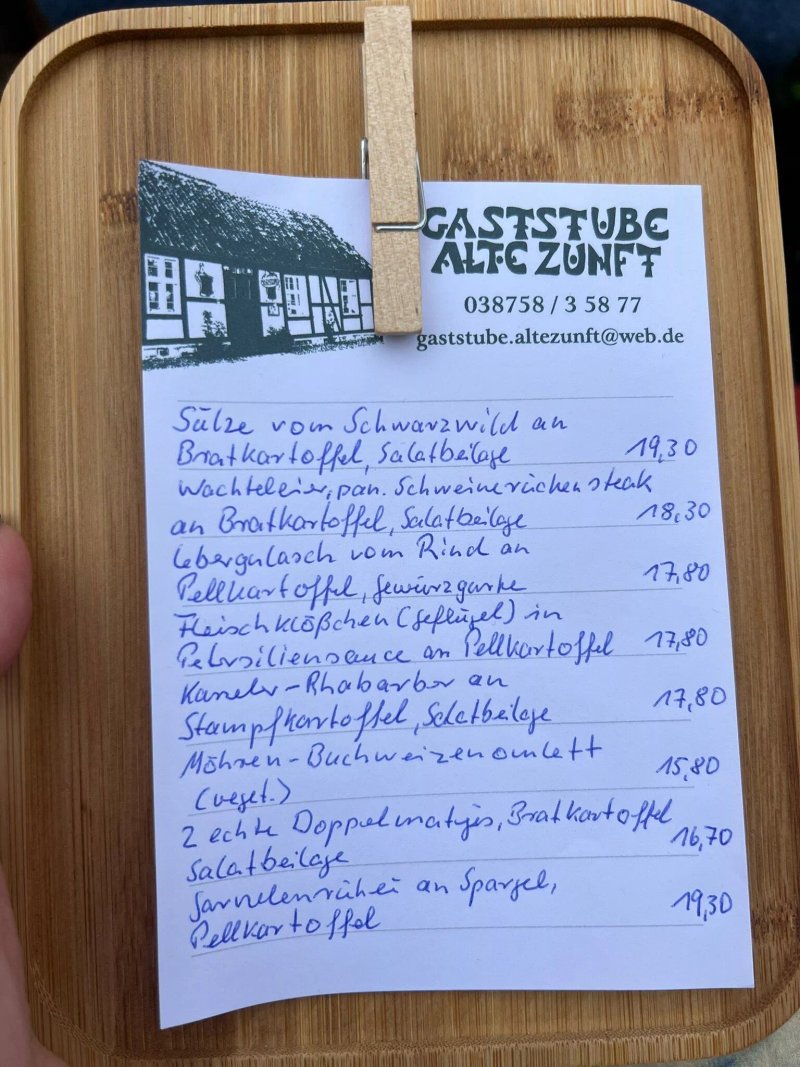 GASTSTUBE
ALTE ZUNFT
038758 / 3 58 77
gaststube.altezunft@web.de
Sülze vom Schwarzwild an
Bratkartoffel, Salatbeilage 19,30
Wachteleier, pan. Schweinerückensteak
an Bratkartoffel, Salatbeilage 18,30
Lebergulasch vom Rind an
Pellkartoffel, Gewürzgurke 17,80
Fleischklößchen (Geflügel) in
Petersiliensauce an Pellkartoffel 17,80
Kaneler-Rhabarber an
Stampfkartoffel, Salatbeilage 17,80
Möhren-Buchweizenomlett
(veget.) 15,80
2 echte Doppelmatjes, Bratkartoffel
Salatbeilage 16,70
Garnelenrührei an Spargel,
Pellkartoffel 19,30